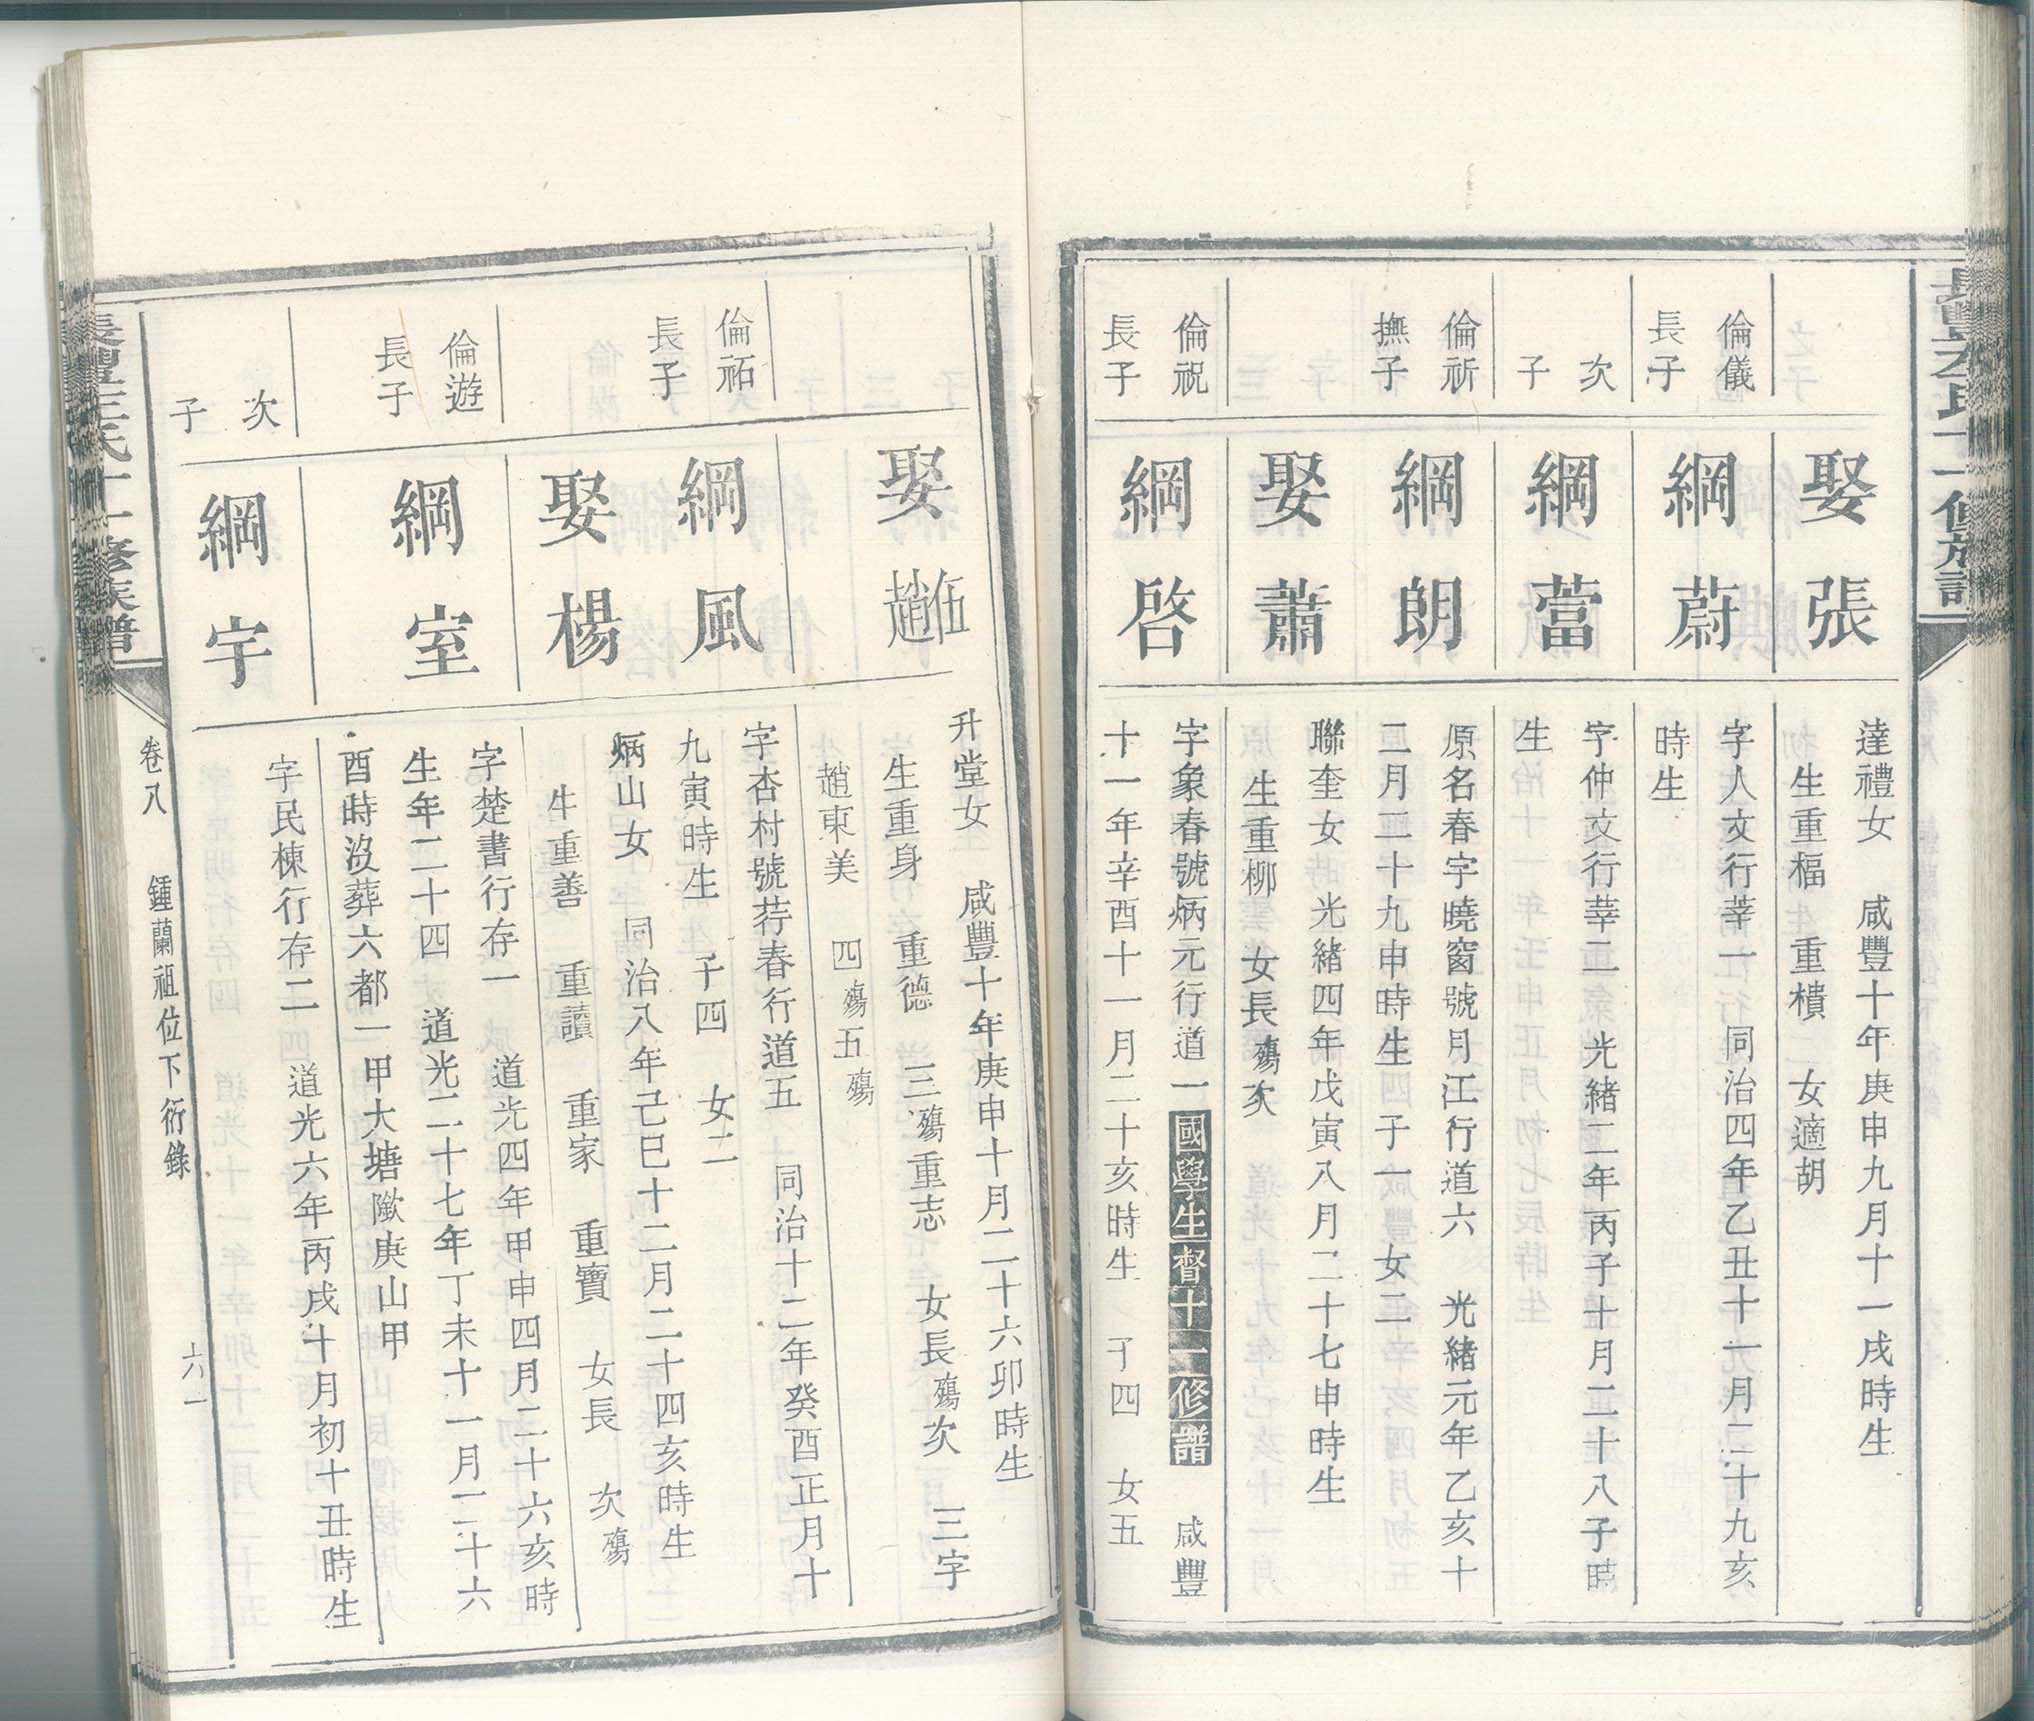 娶張
達禮女　咸豐十年庚申九月十一戌時生
生重福　重樻　女適胡
倫儀
長子
綱蔚
字人文行莘一　同治四年乙丑十一月二十九亥
時生
次
子
綱蕾
字仲文行莘二　光緒二年丙子十月二十八子時
生
倫祈
撫子
綱朗
原名春字曉窗號月江行道六　光緒元年乙亥十
二月二十九申時生　子一　女二
娶蕭
聯奎女　光緒四年戊寅八月二十七申時生
生重柳　女長殤次
倫祝
長子
綱啓
字象春號炳元行道一國學生督十一修譜　咸豐
十一年辛酉十一月二十亥時生　子四　女五
娶伍趙
升堂女　咸豐十年庚申十月二十六卯時生
生重身　重德　三殤　重志　女長殤次　三字
趙東美　四殤五殤
倫祏
長子
綱風
字杏村號荇春行道五　同治十二年癸酉正月十
九寅時生　子四　女二
娶楊
炳山女　同治八年己巳十二月二十四亥時生
生重善　重讀　重家　重寶　女長　次殤
倫遊
長子
綱室
字楚書行存一　道光四年甲申四月二十六亥時
生年二十四　道光二十七年丁未十一月二十六
酉時沒葬六都一甲大塘歐庚山甲
次
子
綱宇
字民棟行存二　道光六年丙戌十月初十丑時生
卷八　鍾蘭祖位下衍錄　六一
氏十一修族譜